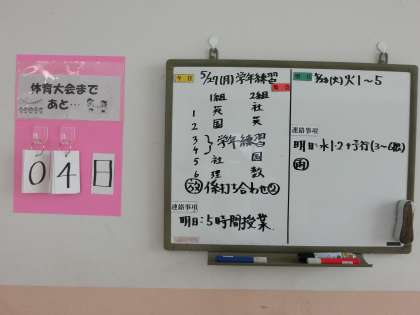 体育大会まで
あと…
04日
今日
5/27(月)学年練習
1組 2組
1 英 社
2 国 英
3
4 学年練習
5 社 国
6 理 数
係打ち合わせ
連絡事項
明日:5時間授業
明日
5/28(火)火1~5
連絡事項